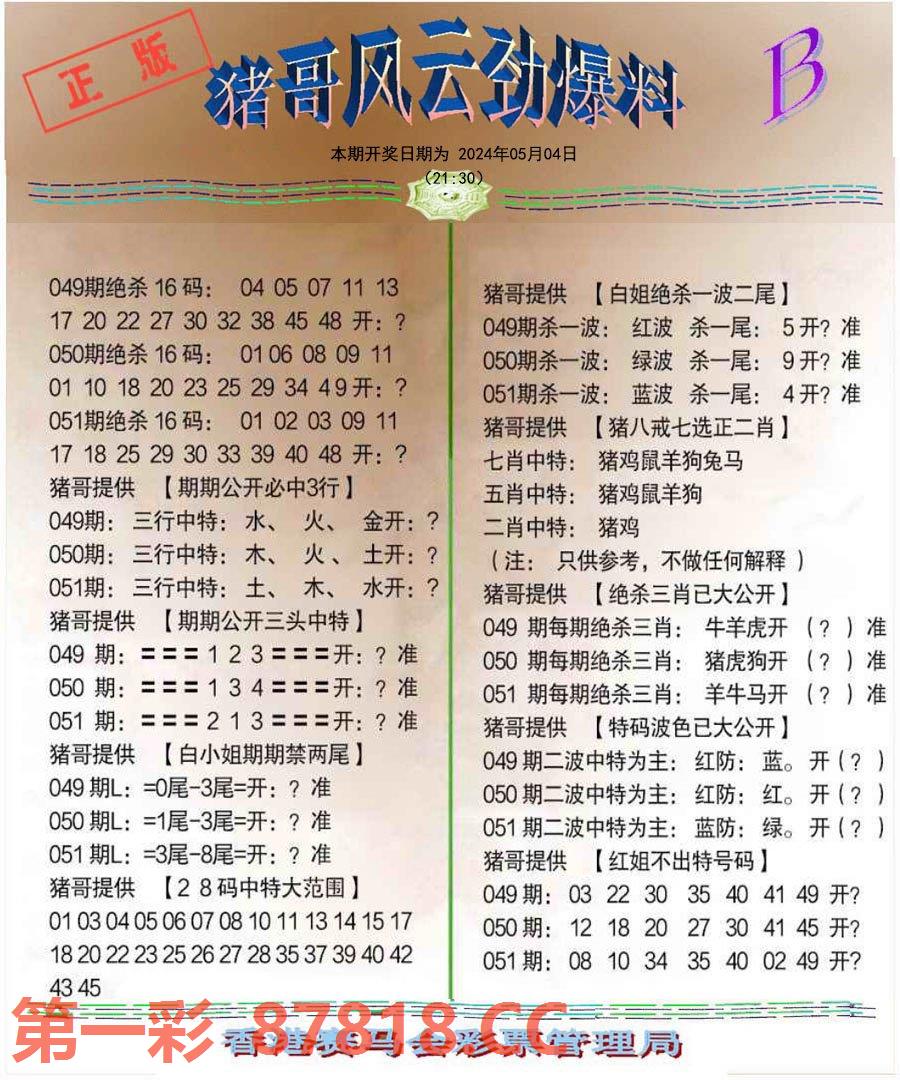 正版
猪哥风云劲爆料
B
本期开奖日期为 2024年05月04日
(21:30)
049期绝杀 16 码： 04 05 07 11 13
17 20 22 27 30 32 38 45 48 开：?
050期绝杀 16 码： 01 06 08 09 11
01 10 18 20 23 25 29 34 49 开：?
051期绝杀 16 码： 01 02 03 09 11
17 18 25 29 30 33 39 40 48 开：?
猪哥提供 【期期公开必中3行】
049期： 三行中特： 水、 火、 金开：?
050期： 三行中特： 木、 火、 土开：?
051期： 三行中特： 土、 木、 水开：?
猪哥提供 【期期公开三头中特】
049 期：=== 1 2 3 ===开：? 准
050 期：=== 1 3 4 ===开：? 准
051 期：=== 2 1 3 ===开：? 准
猪哥提供 【白小姐期期禁两尾】
049 期L：=0尾-3尾=开：? 准
050 期L：=1尾-3尾=开：? 准
051 期L：=3尾-8尾=开：? 准
猪哥提供 【28码中特大范围】
01 03 04 05 06 07 08 10 11 13 14 15 17
18 20 22 23 25 26 27 28 35 37 39 40 42
43 45
猪哥提供 【白姐绝杀一波二尾】
049期杀一波： 红波 杀一尾： 5开? 准
050期杀一波： 绿波 杀一尾： 9开? 准
051期杀一波： 蓝波 杀一尾： 4开? 准
猪哥提供 【猪八戒七选正二肖】
七肖中特： 猪鸡鼠羊狗兔马
五肖中特： 猪鸡鼠羊狗
二肖中特： 猪鸡
（注： 只供参考，不做任何解释）
猪哥提供 【绝杀三肖已大公开】
049 期每期绝杀三肖： 牛羊虎开 （?）准
050 期每期绝杀三肖： 猪虎狗开 （?）准
051 期每期绝杀三肖： 羊牛马开 （?）准
猪哥提供 【特码波色已大公开】
049 期二波中特为主： 红防： 蓝。 开（?）
050 期二波中特为主： 红防： 红。 开（?）
051 期二波中特为主： 蓝防： 绿。 开（?）
猪哥提供 【红姐不出特号码】
049 期： 03 22 30 35 40 41 49 开?
050 期： 12 18 20 27 30 41 45 开?
051 期： 08 10 34 35 40 02 49 开?
第一彩 87818.CC
香港赛马会彩票管理局